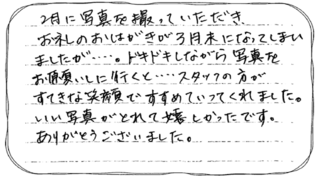 2月に写真を撮っていただき
お礼のおはがきが3月末になってしまい
ましたが…。ドキドキしながら写真を
お願いしに行くと…スタッフの方が
すてきな笑顔ですすめていってくれました。
いい写真がとれて嬉しかったです。
ありがとうございました。